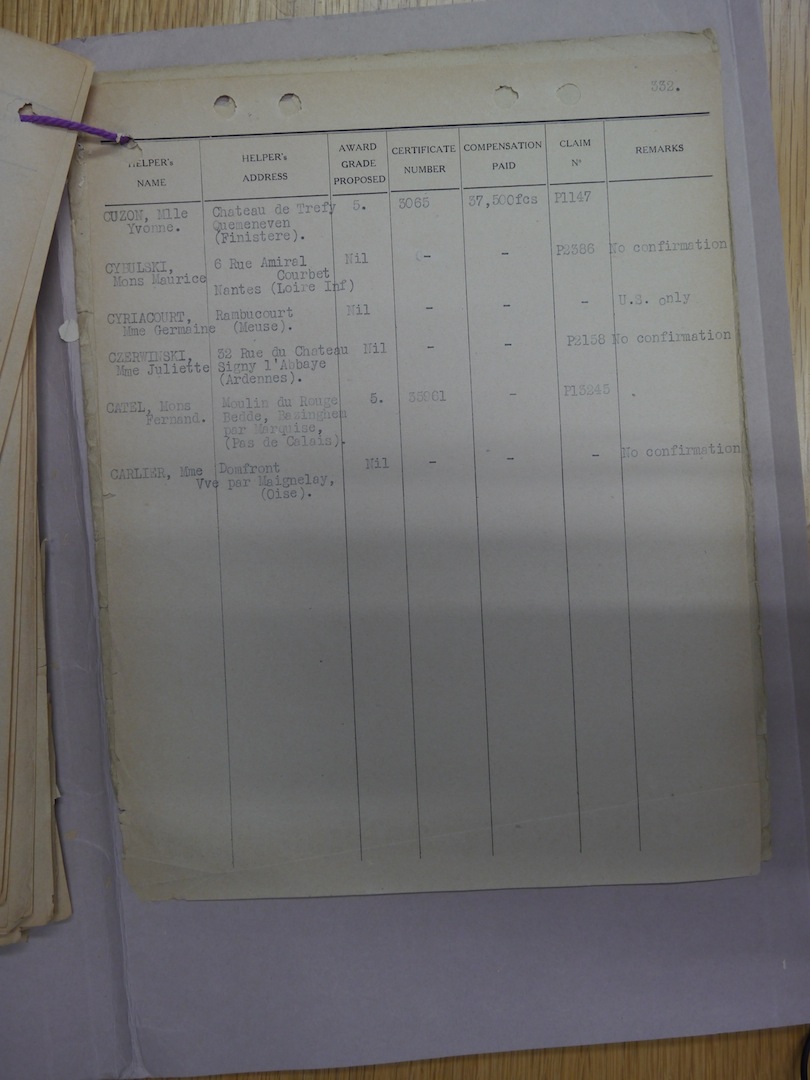 332.
HELPER's NAME HELPER's ADDRESS AWARD GRADE PROPOSED CERTIFICATE NUMBER COMPENSATION PAID CLAIM Nº REMARKS
CUZON, Mlle Chateau de Trefy 5. 3065 37,500fcs P1147
Yvonne. Quemeneven
(Finistere).
CYBULSKI, 6 Rue Amiral Nil - - P2386 No confirmation
Mons Maurice Courbet
Nantes (Loire Inf)
CYRIACOURT, Rambucourt Nil - - - U.S. only
Mme Germaine (Meuse).
CZERWINSKI, 32 Rue du Chateau Nil - - P2158 No confirmation
Mme Juliette Signy l'Abbaye
(Ardennes).
CATEL, Mons Moulin du Rouge 5. - P13245
Fernand. Bedde, Bazinghen
par Marquise,
(Pas de Calais).
CARLIER, Mme Domfront Nil - - - No confirmation
Vve par Maignelay,
(Oise).